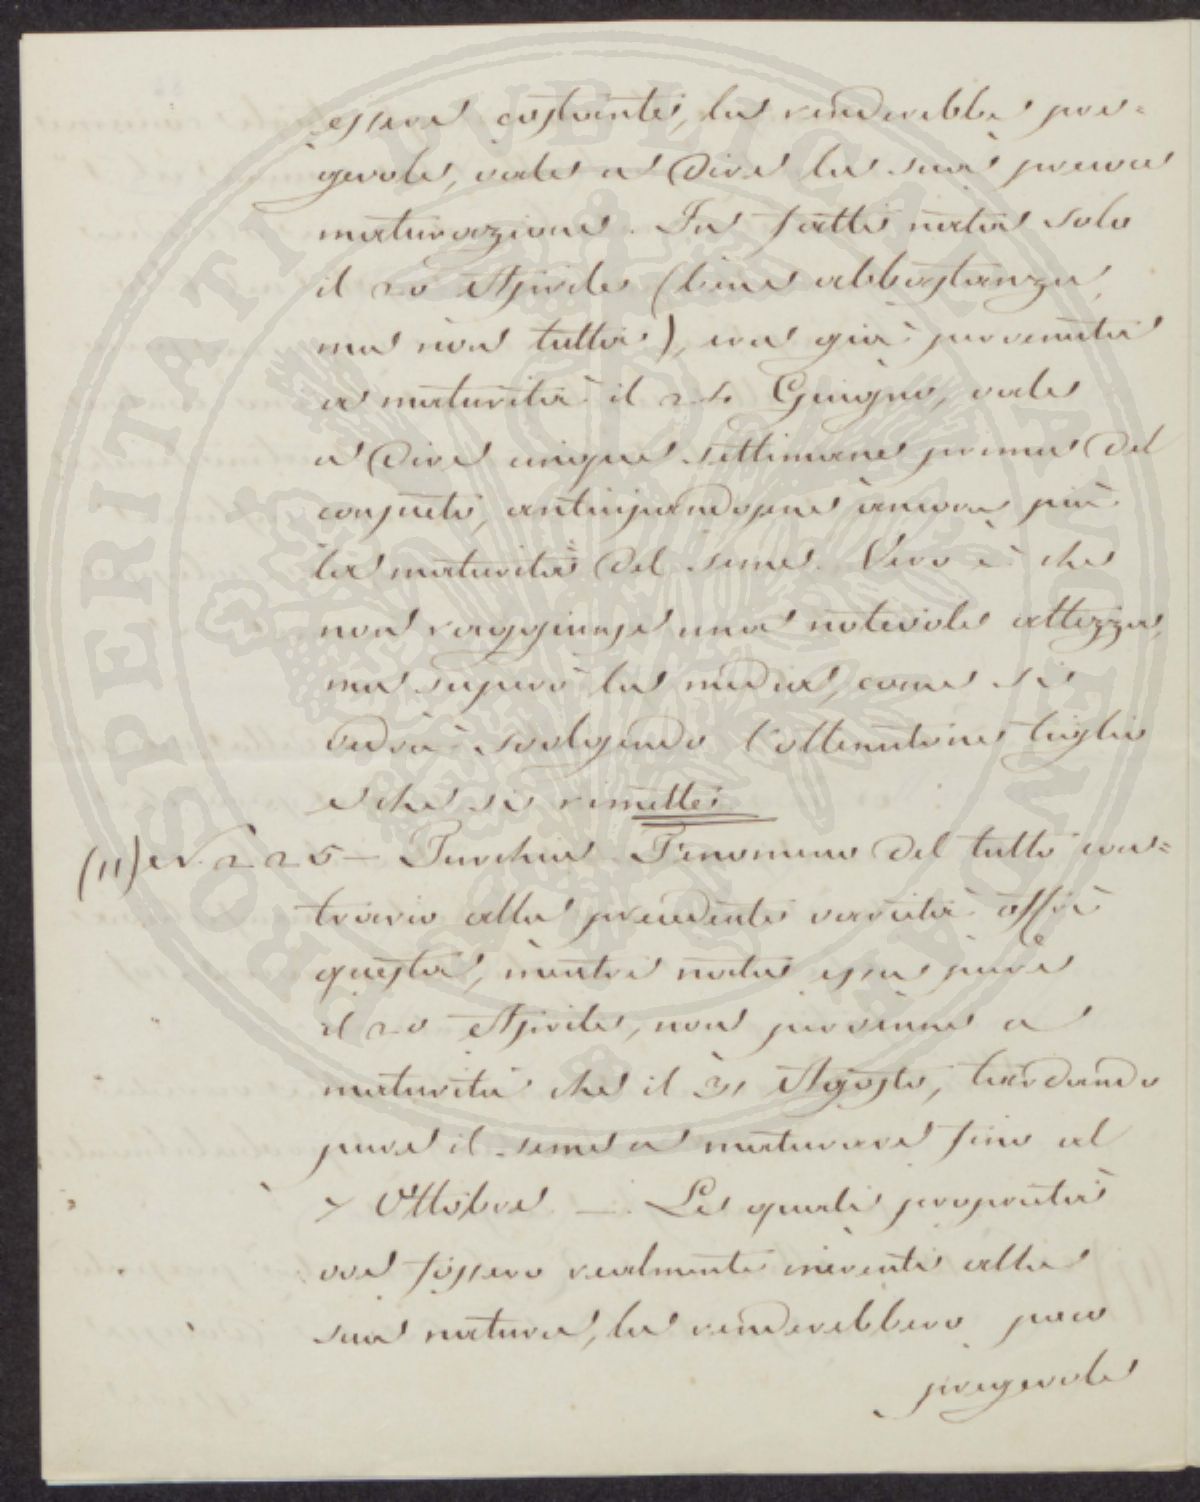 essere costante, la renderebbe pre=
gevole, vale a dire la sua precoce
maturazione. In fatti nata solo
il 20 Aprile (bene abbastanza,
ma non tutta), era già pervenuta
a maturità il 24 Giugno, vale
a dire cinque settimane prima del
consueto, anticipandosene ancora più
la maturità del seme. Vero è che
non raggiunse una notevole altezza,
ma superò la media, come si
vedrà svolgendo l'ottenutone tiglio
che si rimette.
(11) N. 225 — Turchia. Fenomeno del tutto con=
trario alla precedente varietà offrì
questa, mentre nata essa pure
il 20 Aprile, non pervenne a
maturità che il 31 Agosto, tardando
pure il seme a maturare fino al
7 Ottobre. — Le quali proprietà
ove fossero realmente inerenti alla
sua natura, la renderebbero poco
pregevole
PROSPERITATI PUBLICAE AUGENDAE